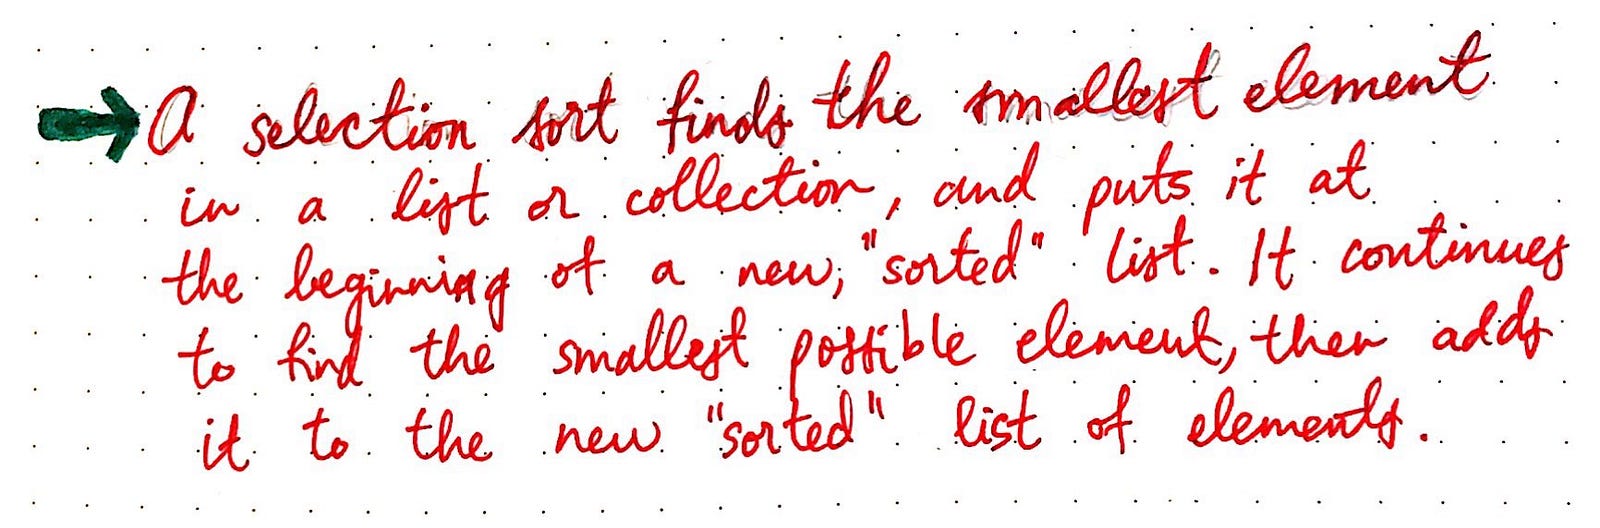 A selection sort finds the smallest element
in a list or collection, and puts it at
the beginning of a new, "sorted" list. It continues
to find the smallest possible element, then adds
it to the new "sorted" list of elements.